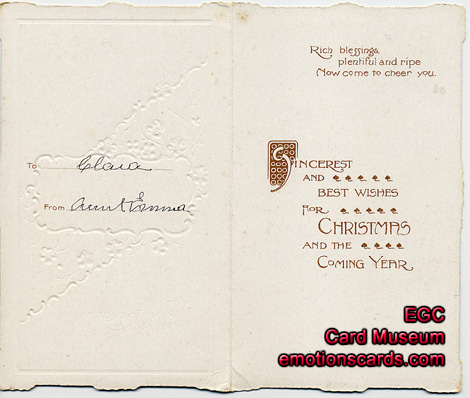 To Clara
From Aunt Emma
Rich blessings,
plentiful and ripe
Now come to cheer you.
Sincerest
and
best wishes
for
Christmas
and the
Coming Year
EGC
Card Museum
emotionscards.com